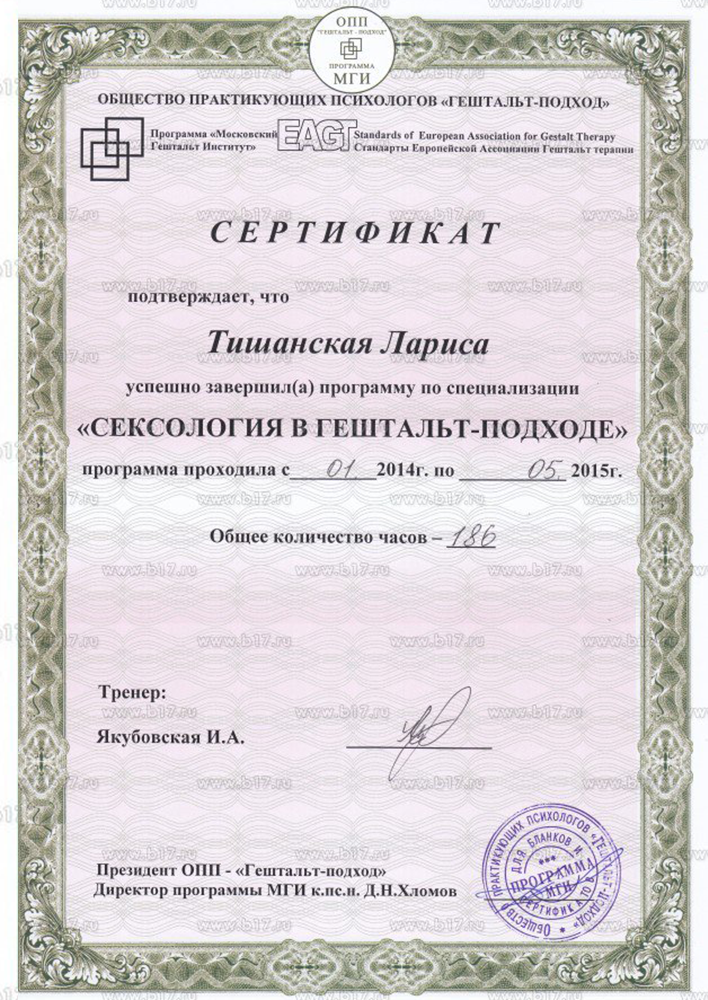 ОПП
"ГЕШТАЛЬТ - ПОДХОД"
ПРОГРАММА
МГИ
ОБЩЕСТВО ПРАКТИКУЮЩИХ ПСИХОЛОГОВ «ГЕШТАЛЬТ-ПОДХОД»
Программа «Московский
Гештальт Институт»
EAGT
Standards of European Association for Gestalt Therapy
Стандарты Европейской Ассоциации Гештальт терапии
СЕРТИФИКАТ
подтверждает, что
Тишанская Лариса
успешно завершил(а) программу по специализации
«СЕКСОЛОГИЯ В ГЕШТАЛЬТ-ПОДХОДЕ»
программа проходила с 01. 2014г. по 05. 2015г.
Общее количество часов – 186
Тренер:
Якубовская И.А.
Президент ОПП - «Гештальт-подход»
Директор программы МГИ к.пс.н. Д.Н.Хломов
ПРАКТИКУЮЩИХ ПСИХОЛОГОВ
ДЛЯ БЛАНКОВ И
ПРОГРАММА
МГИ
ОБЩЕСТВО
www.b17.ru